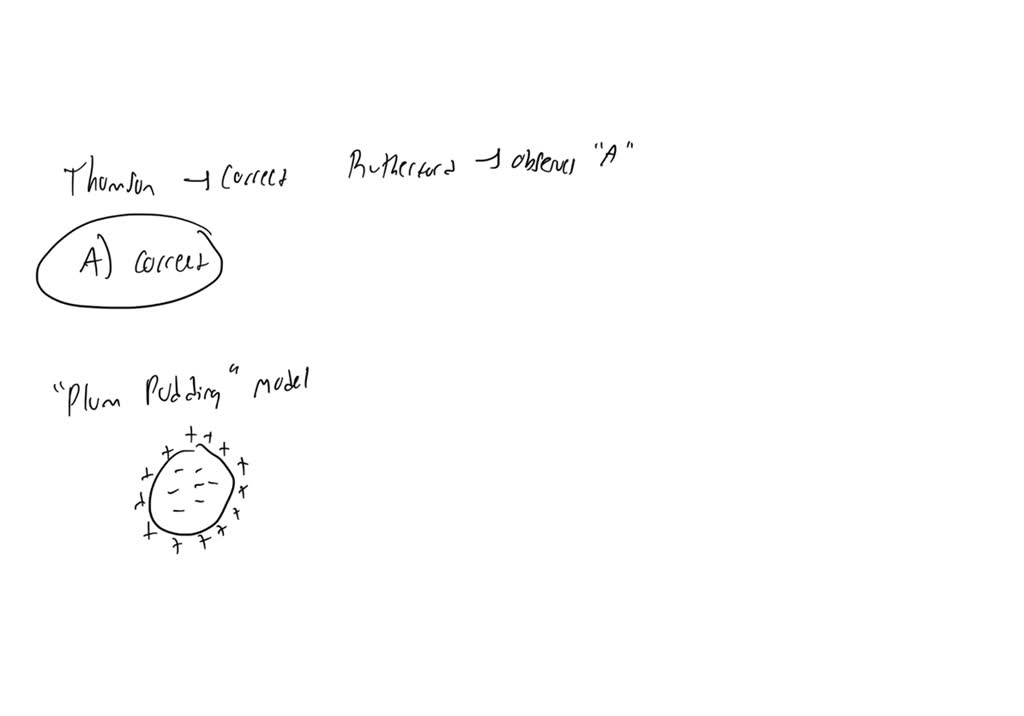 Thomson → correct Rutherford → observes "A"
A) correct
"Plum Pudding" model